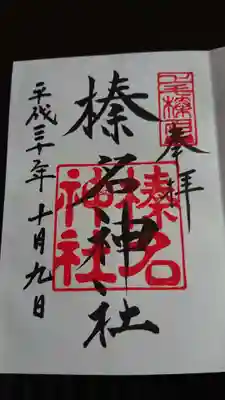 奉拝
上毛榛名
榛名神社
榛名
神社
平成三十年十月九日